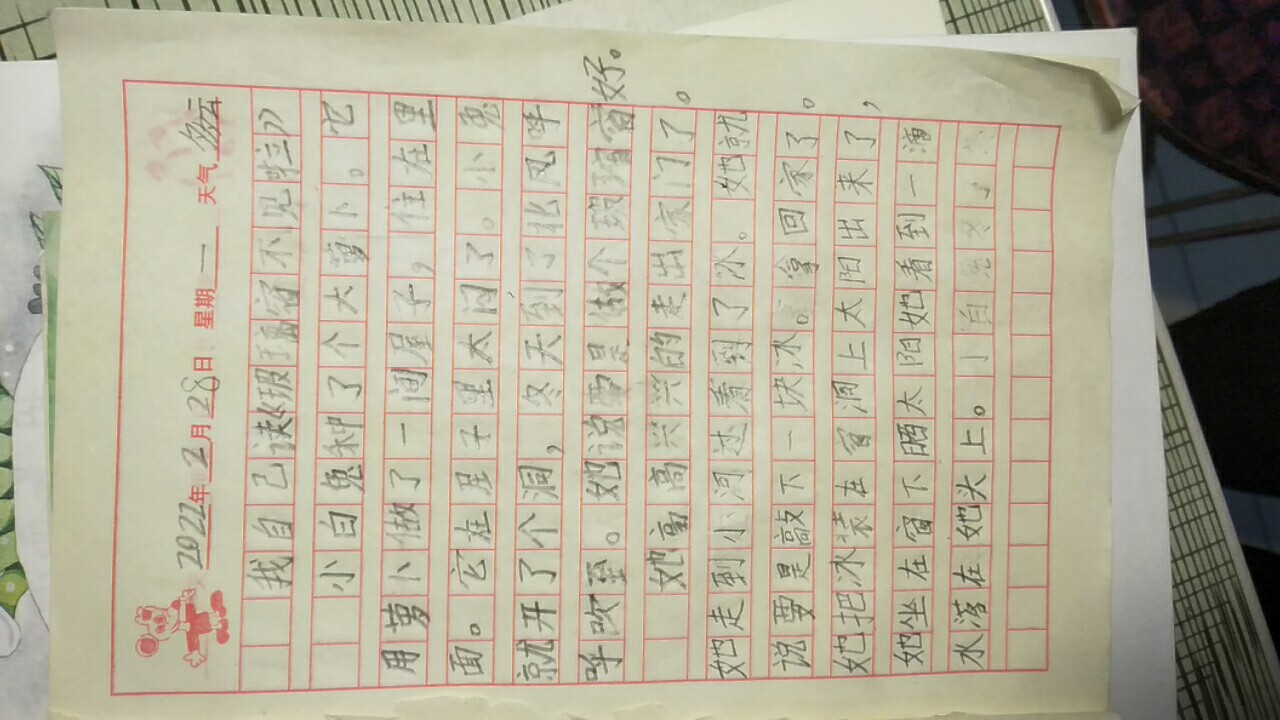 2022年2月28日 星期一 天气多云
我自己读《玻璃窗不见啦》
小白兔种了个大萝卜。它
用萝卜做了一间屋子，住在里
面。它在屋子里太闷了。小兔
就开了个洞，冬天到了北风呼
呼吹至。她说要是做个玻璃窗好。
她高高兴兴的走出家门了。
她走到小河过看到了冰。她就
说要是敲下一块冰。拿回家了。
她把冰装在窗洞上太阳出来了，
她坐在窗下晒太阳她看到一潘
水落在她头上。小白